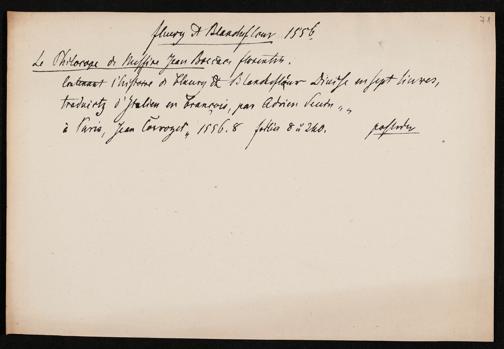 78
fleury & Blanchefleur 1556.
Le Philocope de Messire Jean Boccace florentin.
Contenant l'histoire de fleury & Blanchefleur Divisé en sept livres,
traduictz d'Italien en François, par Adrien Sevin „ „
à Paris, Jean Corrozet„ 1556. 8 feillets 8 à 240.